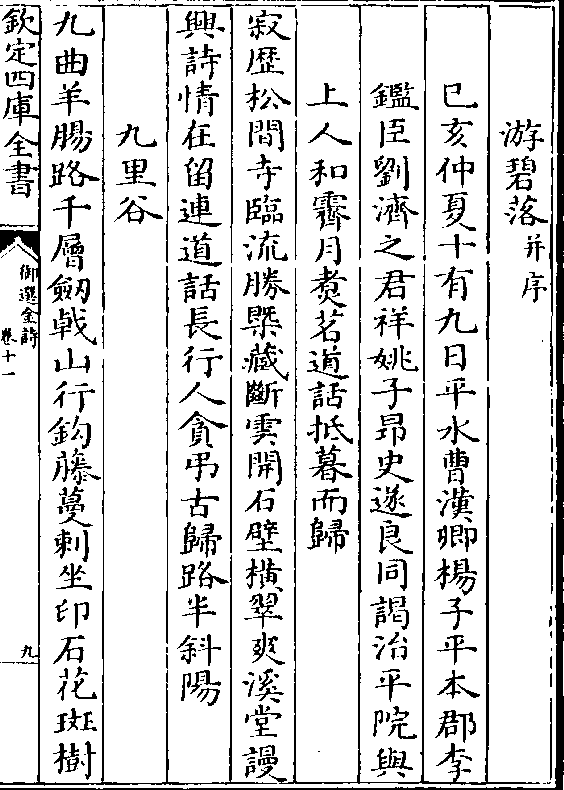 游碧落并序
己亥仲夏十有九日平水曹漢卿楊子平本郡李
鑑臣劉濟之君祥姚子昻史遂良同謁治平院與
上人和霽月煑茗道話抵暮而歸
寂歴松間寺臨流勝槩藏斷雲開石壁横翠爽溪堂謾
興詩情在留連道話長行人貪弔古歸路半斜陽
九里谷
九曲羊腸路千層劒㦸山行鈎藤蔓刺坐印石花斑樹
欽定四庫全書
御選金詩
卷十一
九